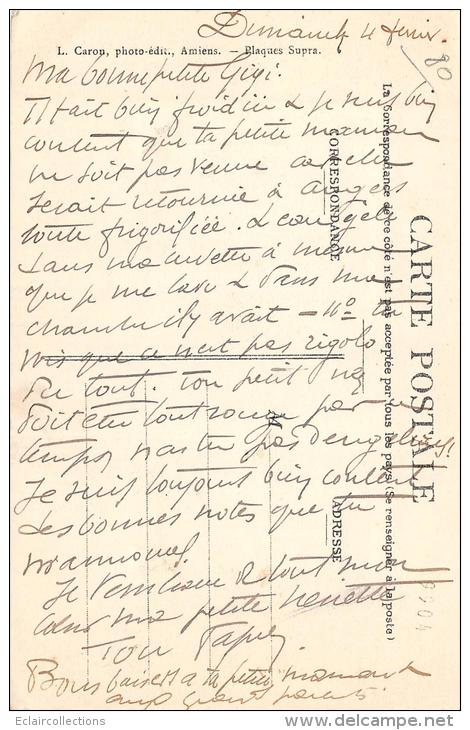 Dimanche 4 février
L. Caron, photo-édit., Amiens. — Plaques Supra.
Ma bonne petite Gigi.
Il fait bien froid ici & je suis bien
content que ta petite maman
ne soit pas venue car elle
serait retournée à Angers
toute frigorifiée. L'eau gèle
dans ma cuvette à mesure
que je me lave & dans ma
chambre il y avait -11°
vois que ce n'est pas rigolo
du tout. Ton petit nez
doit être tout rouge par ce
temps, n'as-tu pas d'engelures!
Je suis toujours bien content
des bonnes notes que tu
m'annonces.
Je t'embrasse de tout mon
cœur ma petite nénette
Ton Papa
Bons baisers à ta petite maman &
aux grands parents.
CARTE POSTALE
La Correspondance de ce côté n'est pas acceptée par tous les pays (Se renseigner à la poste)
CORRESPONDANCE
ADRESSE
Eclaircollections